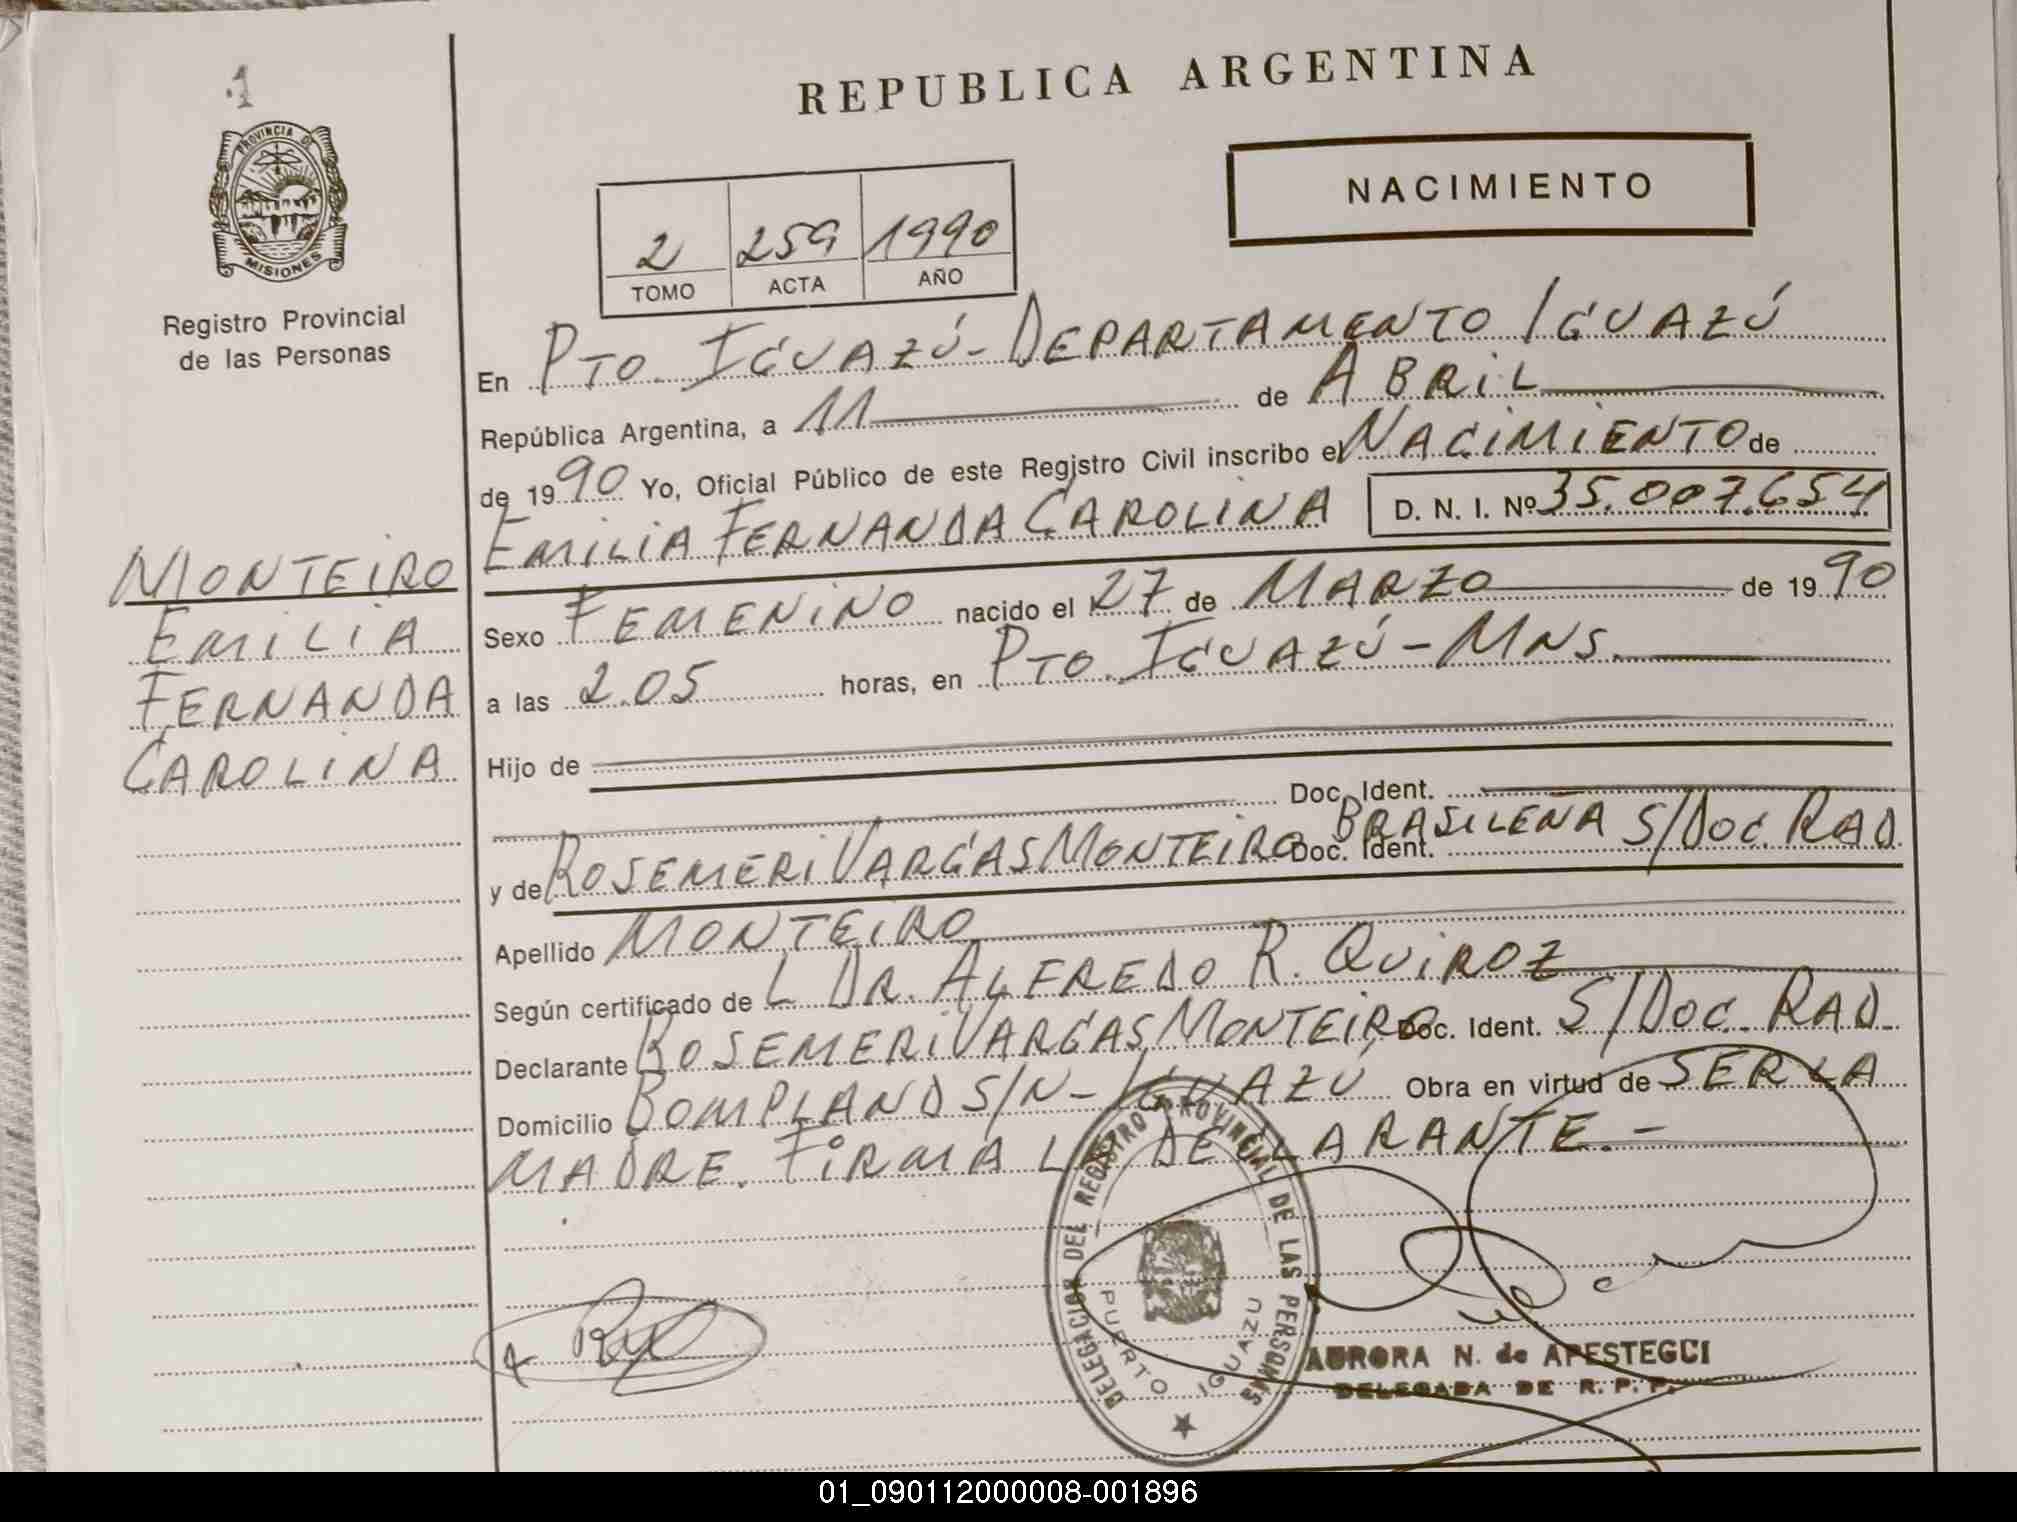 1
REPUBLICA ARGENTINA
PROVINCIA DE
MISIONES
Registro Provincial
de las Personas
NACIMIENTO
2 259 1990
TOMO ACTA AÑO
En PTO. IGUAZÚ - DEPARTAMENTO IGUAZÚ
República Argentina, a 11 de ABRIL
de 1990 Yo, Oficial Público de este Registro Civil inscribo el NACIMIENTO de
EMILIA FERNANDA CAROLINA D. N. I. Nº 35.007.654
MONTEIRO
EMILIA
FERNANDA
CAROLINA
Sexo FEMENINO nacido el 27 de MARZO de 1990
a las 2.05 horas, en PTO. IGUAZÚ - MNS.
Hijo de
Doc. Ident.
y de ROSEMERI VARGAS MONTEIRO Doc. Ident. BRASILEÑA S/DOC. RAD.
Apellido MONTEIRO
Según certificado de L DR. ALFREDO R. QUIROZ
Declarante ROSEMERI VARGAS MONTEIRO Doc. Ident. S/DOC. RAD.
Domicilio BOMPLAND S/N - IGUAZU Obra en virtud de SER LA
MADRE. FIRMA LA DECLARANTE. -
DELEGACION DEL REGISTRO PROVINCIAL DE LAS PERSONAS
PUERTO IGUAZU
AURORA N. de APESTEGUI
DELEGADA DE R. P. P.
01_090112000008-001896